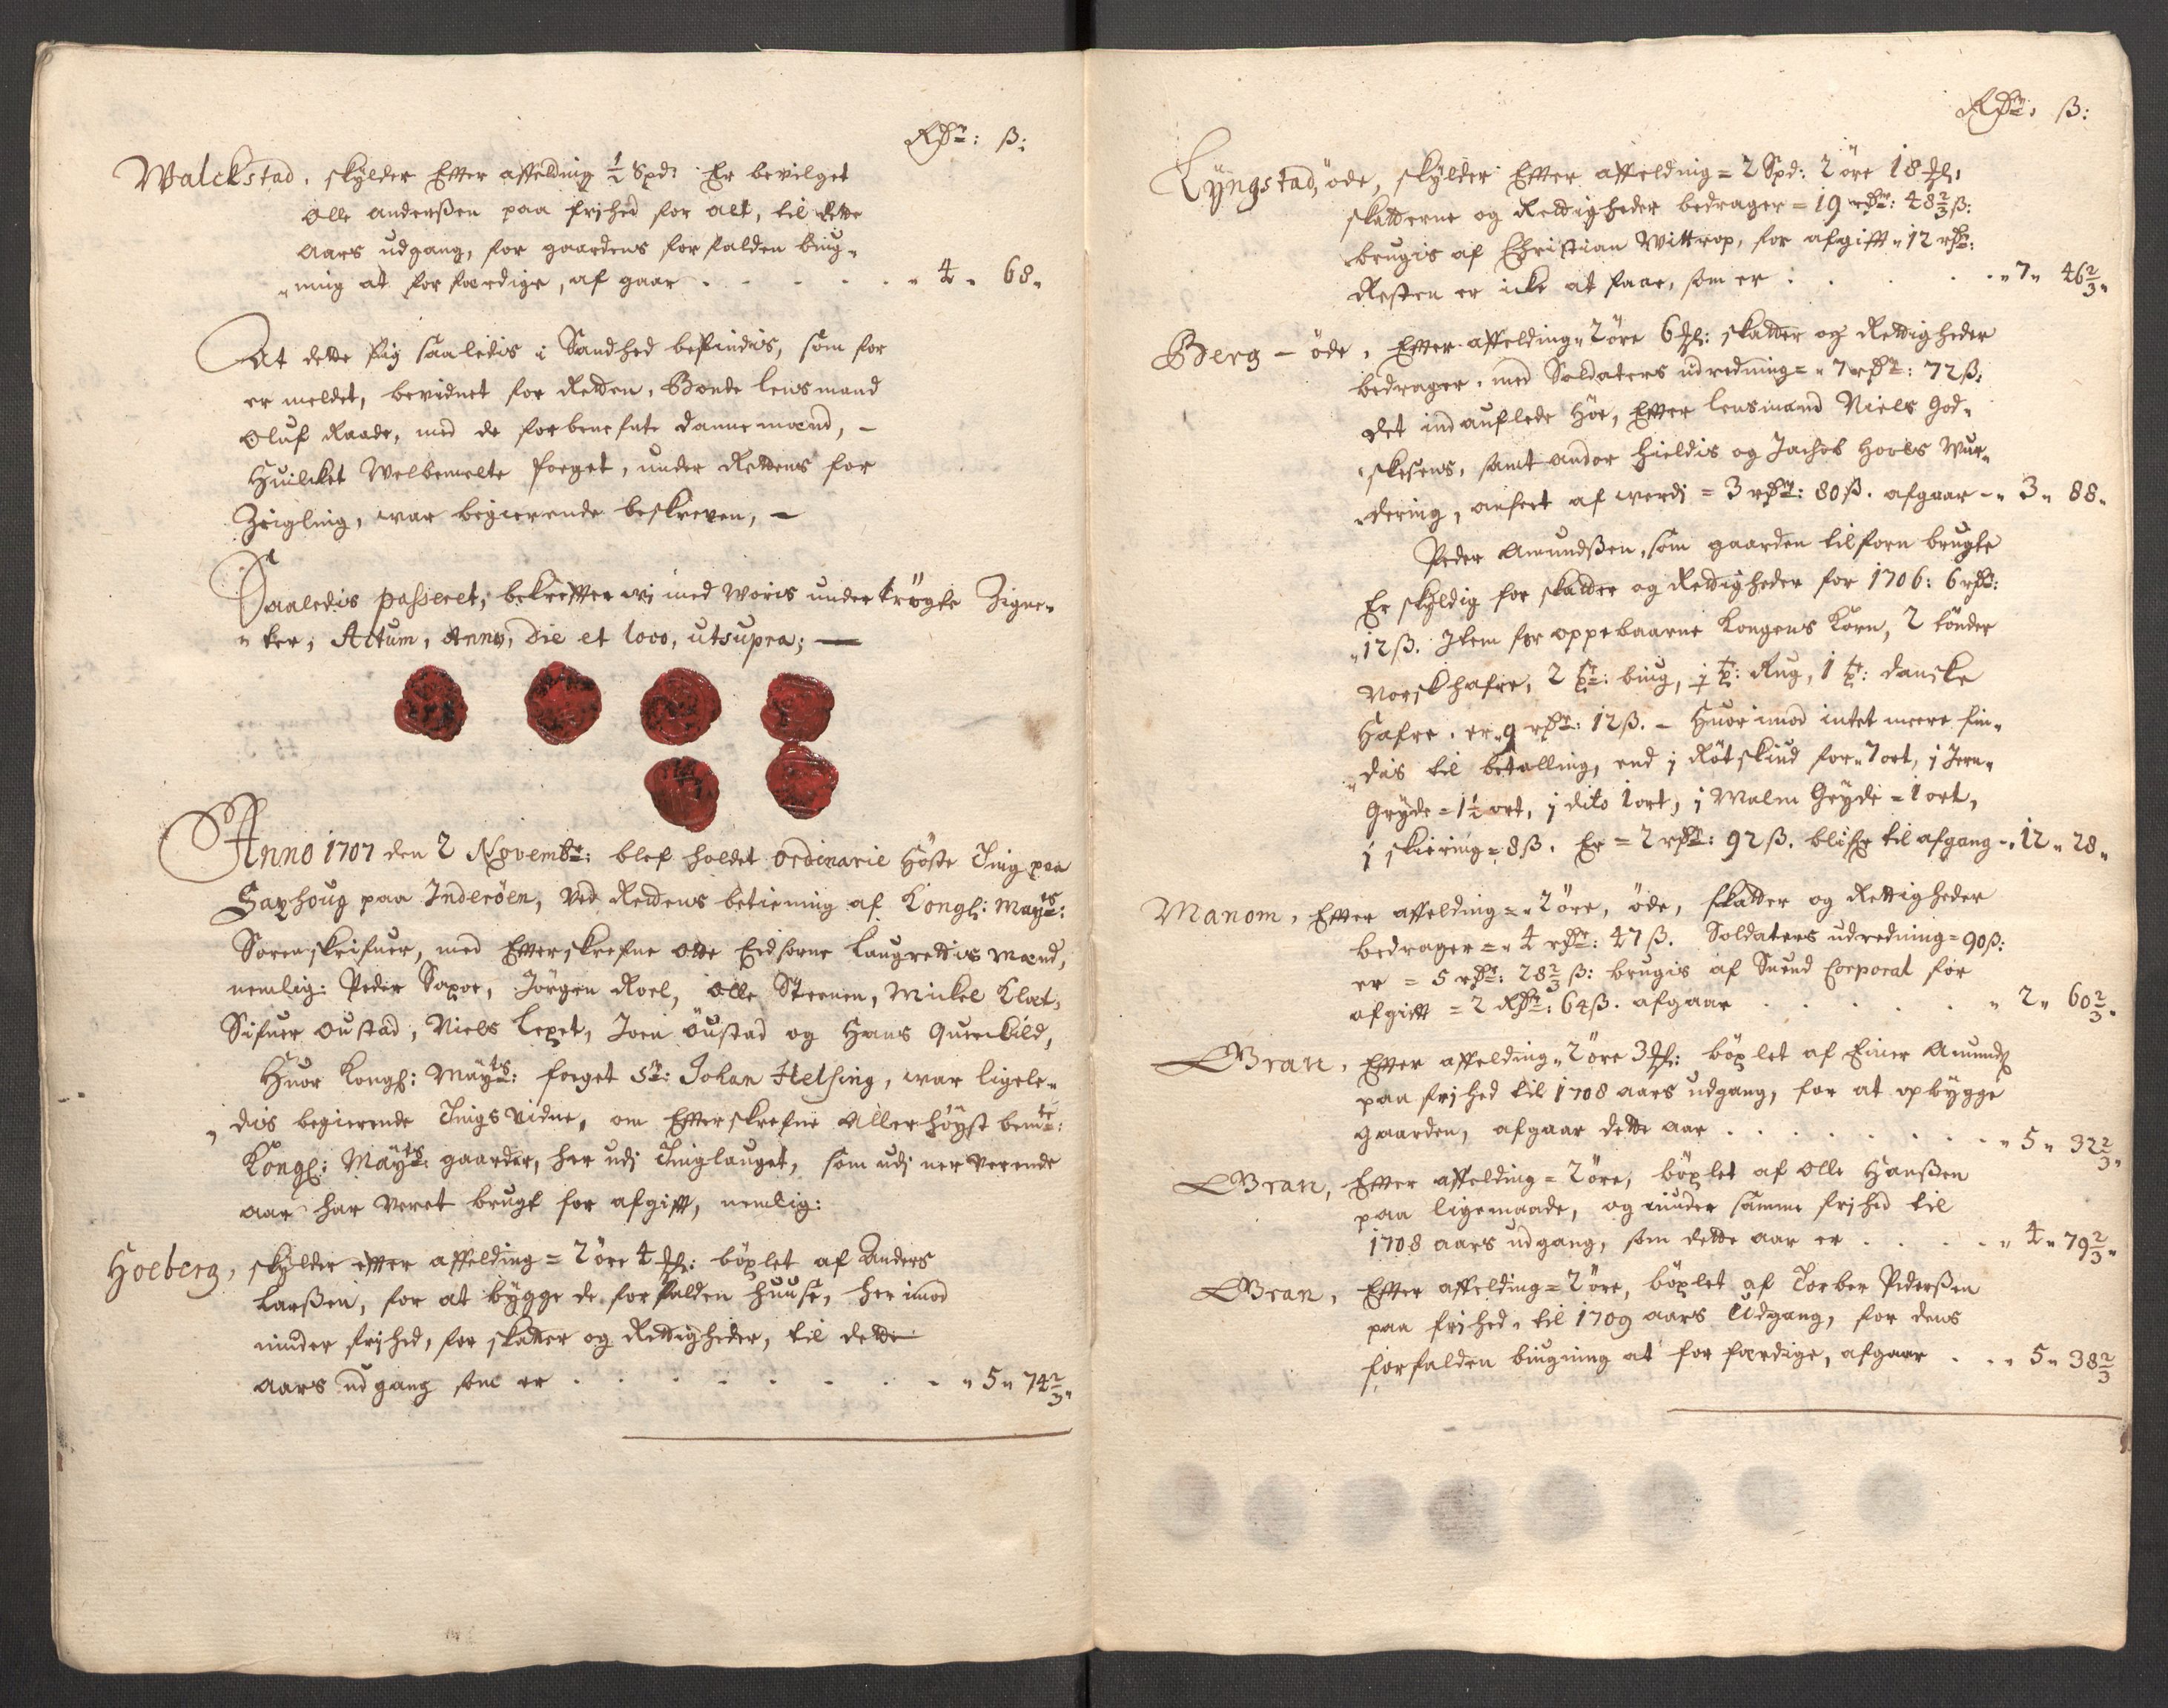 Rdr: ß:
Walckstad, skylder Efter affelding ½ Spd: Er bevilget
Olle Anderßen paa frihed for alt, til dette
Aars udgang, for gaardens forfalden biug„
„ning at forfærdige, afgaar . . . . . „ 4 „ 68 „
At dette sig saaledis i Sandhed befindis, som for
er meldet, bevidnet for Retten, Bonde lensmand
Oluf Raade, med de forbenefnte Dannemænd, –
Huilcket Welbemelte foeget, under Rettens for
Zeigling, war begierende beskreven, –
Saaledis passeret, bekrefter wi med Woris undertrögte Zigne„
„ter, Actum, Anno, Die et loco, utsupra; —
Anno 1707 den 2 Novembr: blef holdet ordinarie Höste Ting paa
Saxhoug paa Inderöen, ved Rettens betiening af Kongl: Mayts:
Sorenskrifuer, med Efterskrefne Otte Eedsorne Laugrettis Mænd,
nemlig: Peder Saxoe, Jörgen Roel, Olle Steenen, Mickel Klæt,
Sifuer Oustad, Niels Lexet, Joen Öustad og Hans Quernbild,
Huor Kongl: Mayts: foeget Sr: Johan Helsing, war ligele„
„dis begierende Tings vidne, om Efterskrefne Allerhöyst bemte:
Kongl: Mayts: gaarder, her udj Tinglauget, som udj nerverende
aar har veret brugt for afgift, nemlig:
Hoeberg, skylder efter affelding = 2 öre 4 ℳl: böxlet af Anders
Larßen, for at bygge de forfalden Huuse, her imod
niuder frihed, for skatter og Rettigheder, til dette
aars udgang som er . . . . . . . „ 5 „ 74⅔ „
Rdr: ß:
Lyngstad, öde, skylder Efter affelding = 2 Spd: 2 öre 18 ℳl:
skatterne og Rettigheder bedrager = 19 rdr: 48⅔ ß:
brugis af Christian Wittrop, for afgift „ 12 rdr:
Resten er icke at faae, som er . . . . „ 7 „ 46⅔ „
Berg – öde, Efter affelding „ 2 öre 6 ℳl: skatter og Rettigheder
bedrager, med Soldaters udredning = „ 7 rdr: 72 ß:
Det ind auflede Höe, Efter lensmand Niels God„
„skesens, samt Andor Hieldis og Jachob Hoels Wur„
„dering, anfört af werdj = 3 rdr: 80 ß. afgaar – „ 3 „ 88 „
Peder Amundßen, som gaarden tilforn brugte
Er skyldig for skatter og Rettigheder for 1706: 6 rdr:
„12 ß. Item for oppebaarne Kongens Korn, 2 tönder
Norsk hafre, 2 tr: biug, j tr: Rug, 1 tr: danske
Hafre, er „ 9 rdr: 12 ß. – Huorimod intet meere fin„
„dis til betalling, end j Röt skind for „ 7 ort, j Jern„
Gryde = 1½ ort, j dito 1 ort, j Malm Gryde = 1 ort,
j skiering = 8 ß. Er = 2 rdr: 92 ß. blifr til afgang – „ 12 „ 28 „
Manom, Efter affelding = „ 2 öre, öde, skatter og Rettigheder
bedrager = „ 4 rdr: 47 ß. Soldaters udredning = 90 ß:
er = 5 rdr: 28⅔ ß: brugis af Suend Corporal for
afgift = 2 Rdr: 64 ß. afgaar . . . . . „ 2 „ 60⅔ „
Gran, Efter affelding „ 2 öre 3 ℳl: böxlet af Einer Amundß
paa frihed til 1708 aars udgang, for at opbygge
Gaarden, afgaar dette aar . . . . . . . „ 5 „ 32⅔ „
Gran, Efter affelding = 2 öre, böxlet af Olle Hanßen
paa ligemaade, og niuder samme frihed til
1708 aars udgang, som dette aar er . . . . „ 4 „ 79⅔ „
Gran, Efter affelding = 2 öre, böxlet af Torber Pederßen
paa frihed, til 1709 aars Udgang, for dens
forfalden biugning at forfærdige, afgaar . . „ 5 „ 38⅔